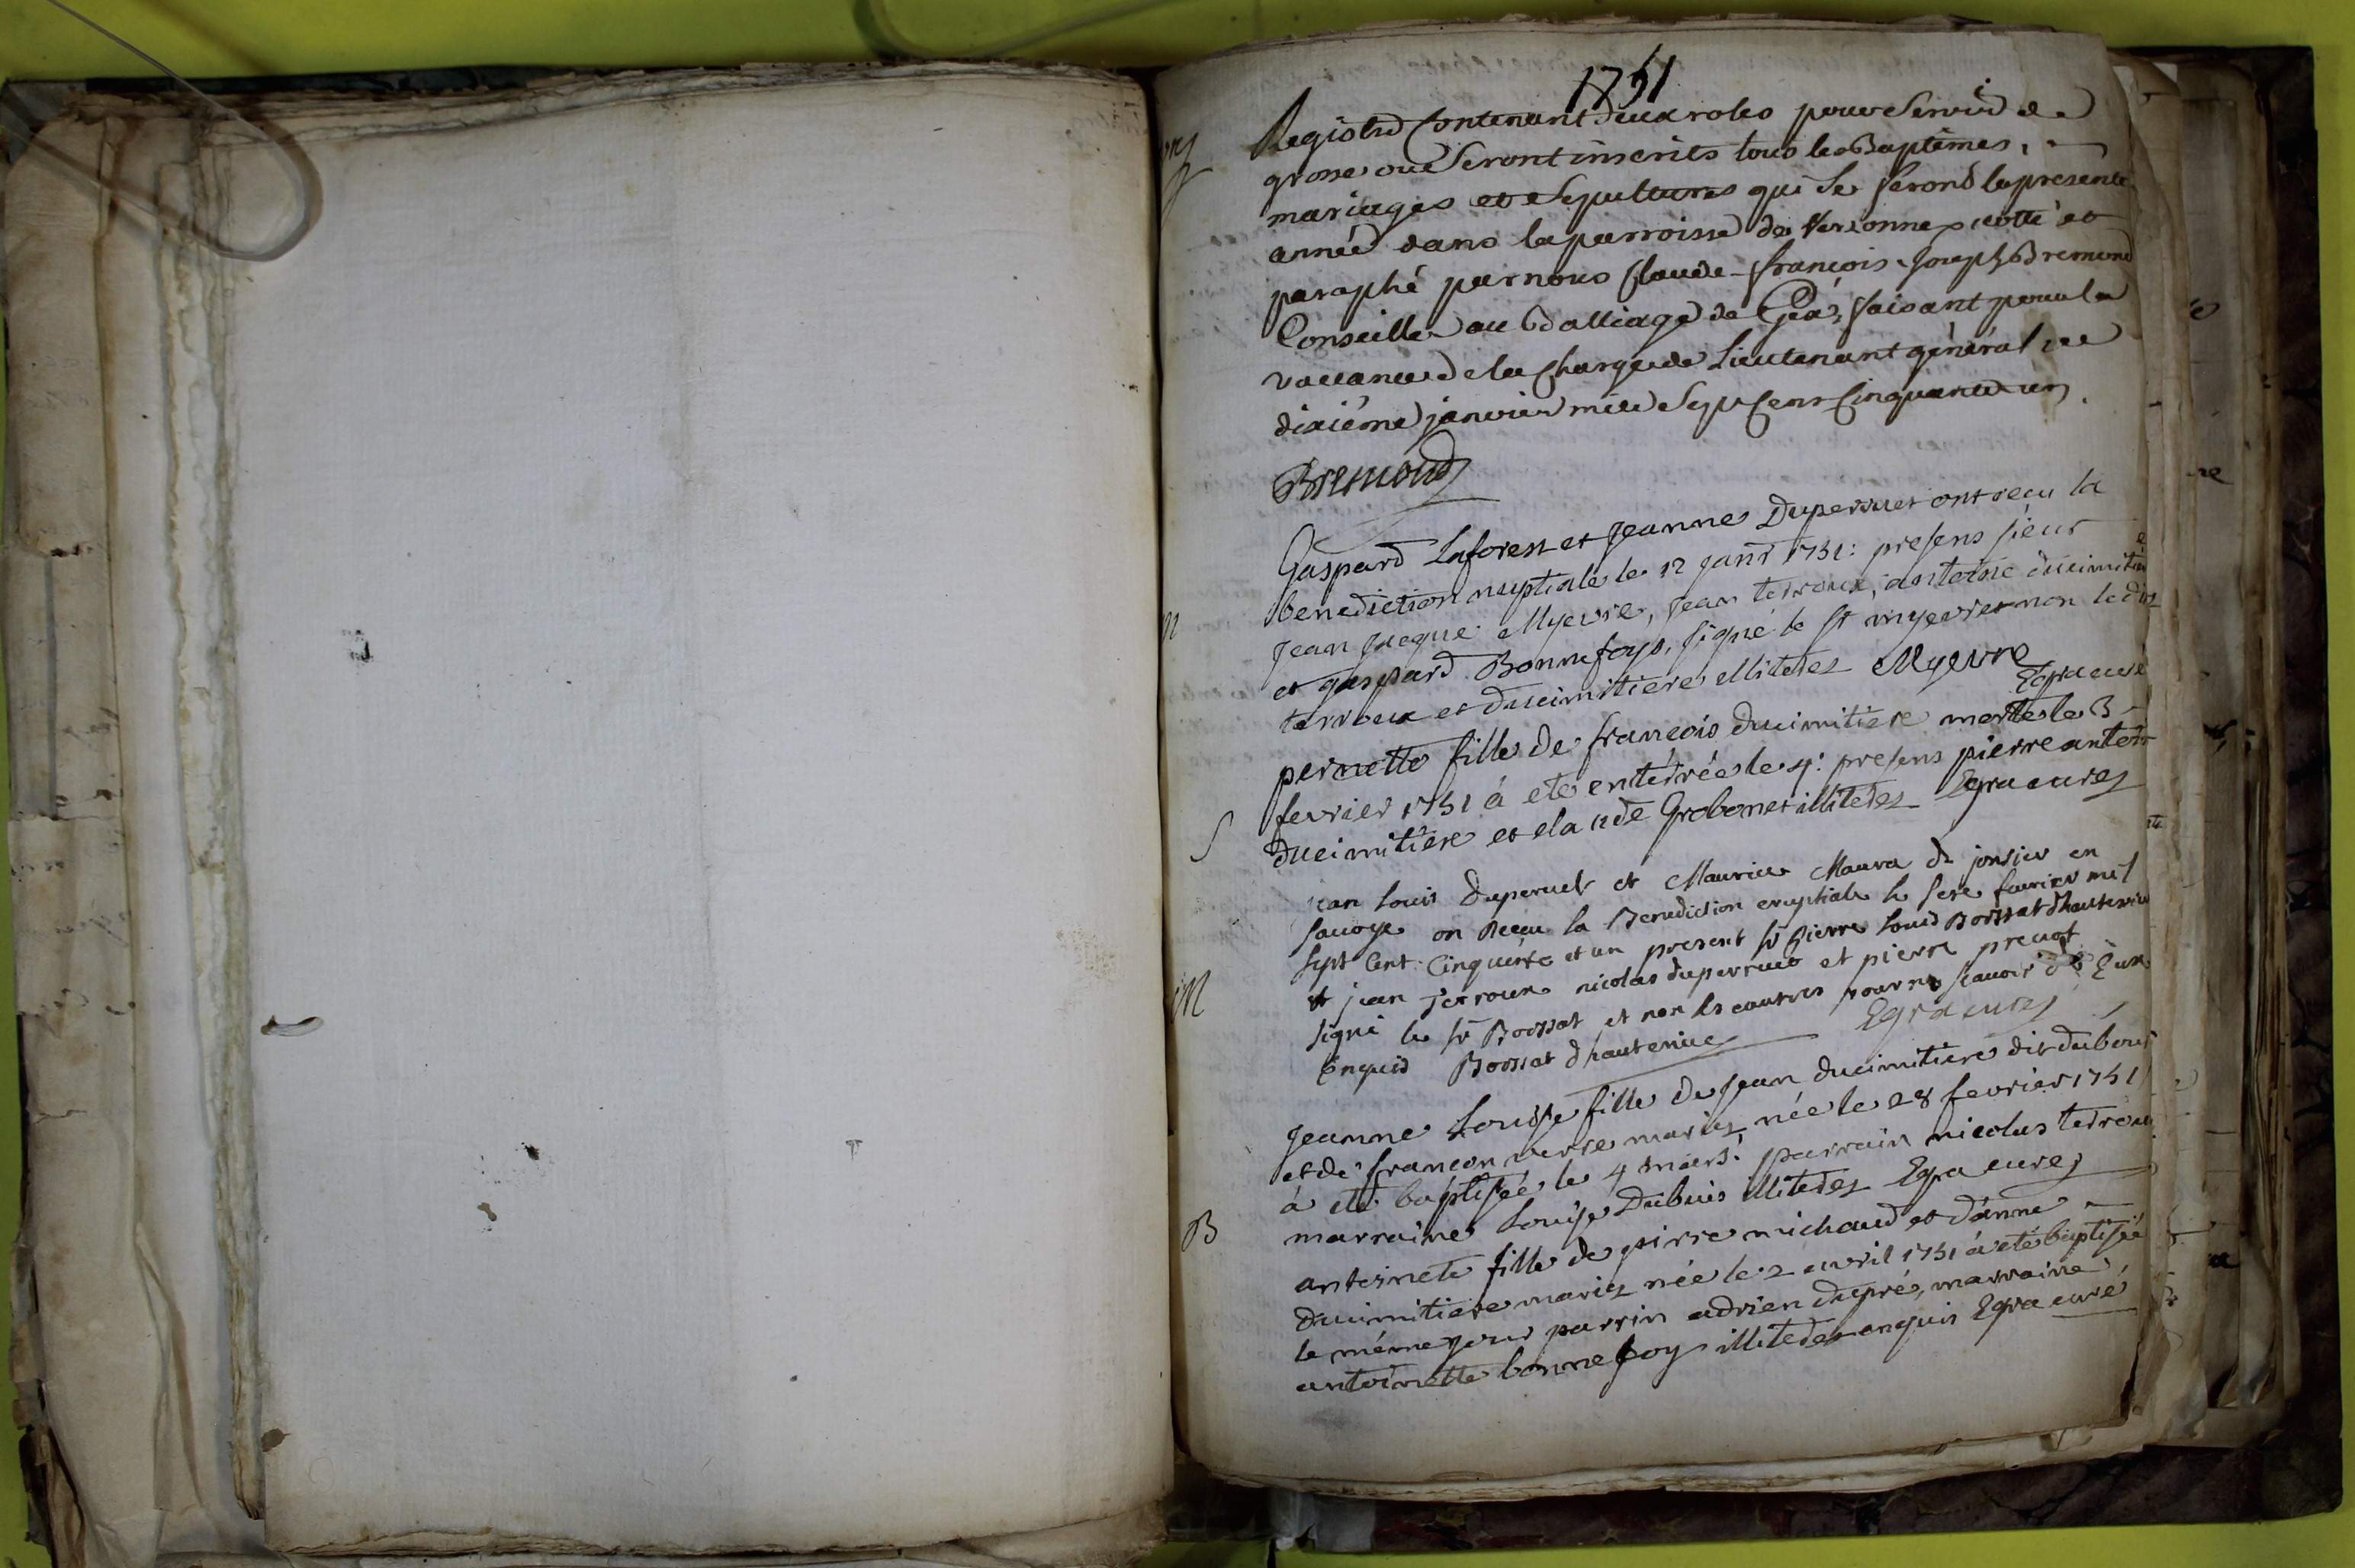 1751
Registre Contenant deux roles pour Servir de
grosse ou Seront inscrits tous les Baptêmes,
mariages et Sepultures qui se feront la presente
année dans la parroisse de Versonnex cotté et
paraphé par nous Claude-françois-Joseph Bremond
Conseiller au Balliage de Gex, faisant pour la
vaccance de la Charge de Lieutenant général ce
dixiéme janvier mille Sept Cent Cinquante un
Bremond
Gaspard Laforest et Jeanne Duperruet ont recu la
benediction nuptiale le 12 janr 1751: presens sieur
Jean Jacque Myevre, Jean terroux, antoine ducimitiere
et gaspard Bonnefoys, signé le sr myevre non led
terroux et ducimitiere illiterés Myevre
M
Egra curé
pernette fille de françois ducimitiere morte le 3
fevrier 1751 à eté enterrée le 4: presens pierre antoi
ducimitiere et claude Grobonet illiterés Egra curé
S
jean Louis Duperruet et Maurica Maura de jonsier en
Savoye on Receu la Benediction nuptiale le fevrier mil
Sept Cent Cinquante et un present sr pierre Louis Borssat d'hauterive
et jean terroux nicolas duperruet et pierre prevot
M
signé le sr Borssat et non les autres pour ne scavoir de Eux
Enquis Borssat d'hauterive Egra curé
Jeanne Louise fille de Jean ducimitiere dit dubouis
et de françon mariés née le 28 fevrier 1751
à eté baptisée le 4 mars. parrain nicolas terroux
marraine Louise Dubuis illiterés Egra curé
B
antoinete fille de pierre michaud et d'anne
ducimitiere mariés née le 2 avril 1751 à eté baptisée
le même jour parrin adrien dupré, marraine
antoinette bonnefoy illiterés enquis Egra curé